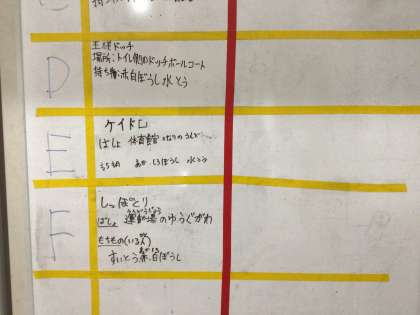 D
王様ドッチ
場所:トイレ側のドッチボールコート
持ち物:赤白ぼうし水とう
E
ケイドロ
ばしょ 体育館となりのうんどう
もち物 あか しろぼうし 水とう
F
しっぽとり
うんどうじょう
ばしょ 運動場のゆうぐがわ
もちもの(いる人)
あかしろ
すいとう赤白ぼうし